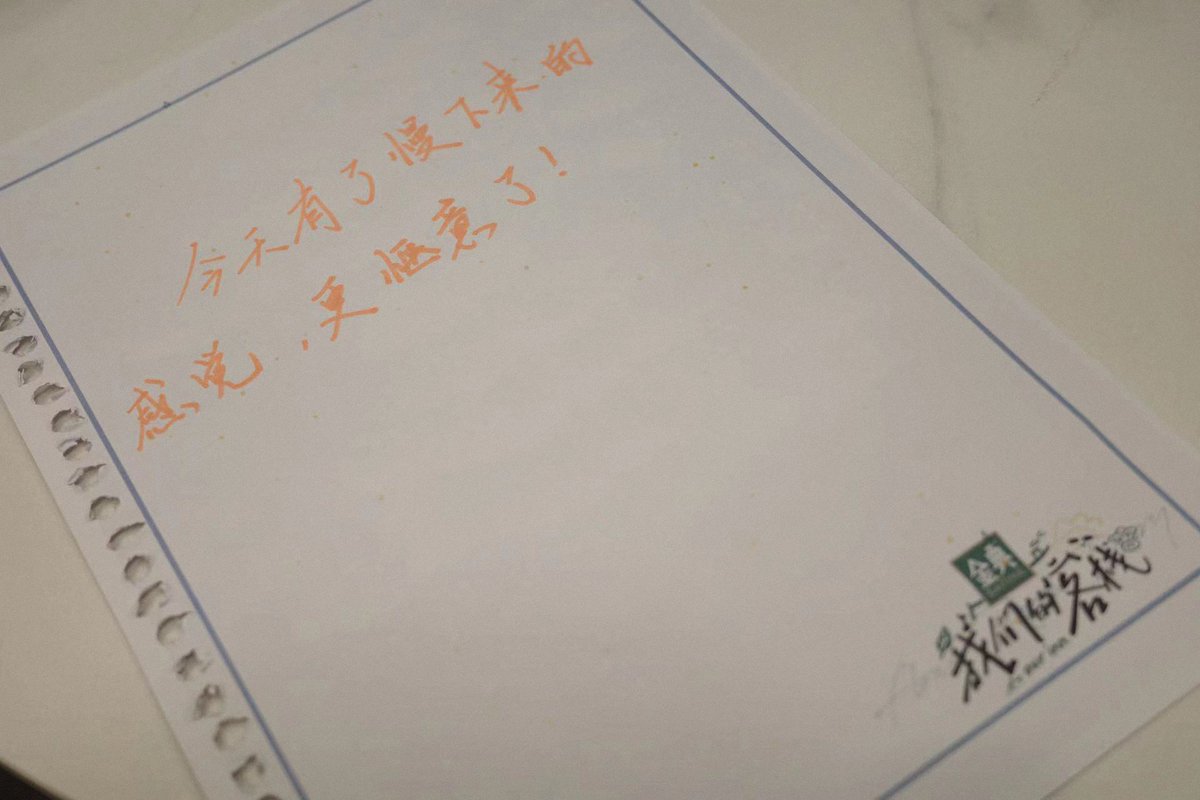 今天有了慢下来的
感觉，更惬意了！
金典
我们的客栈